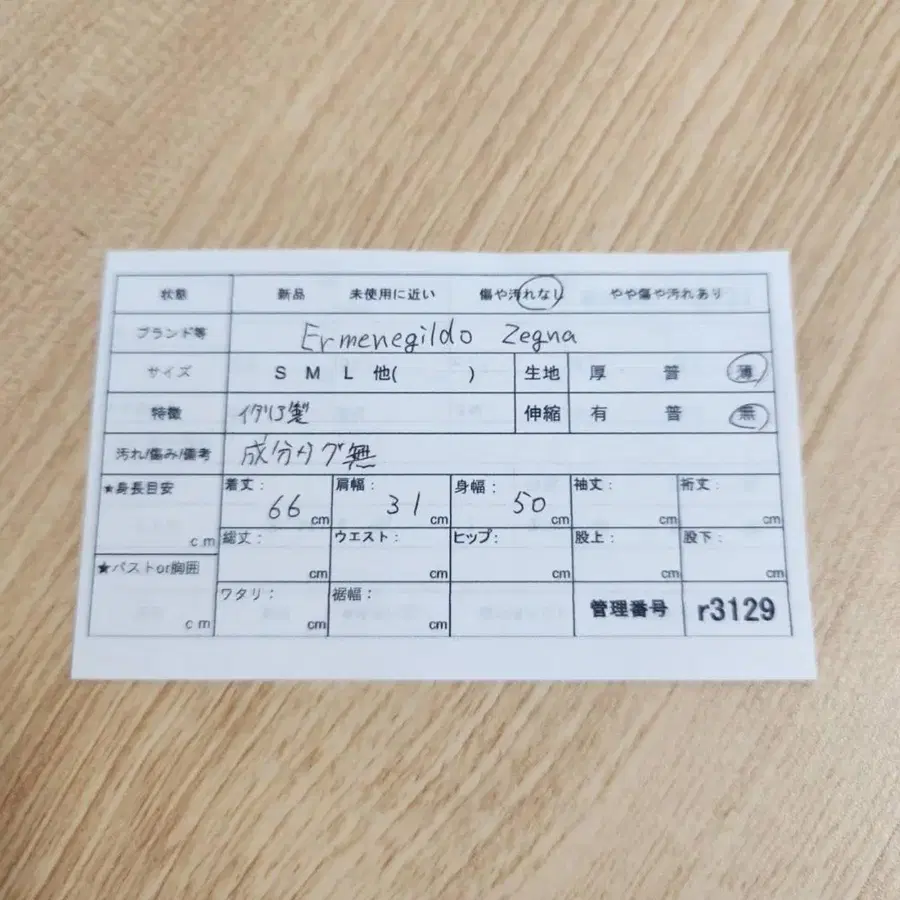 状態 新品 未使用に近い 傷や汚れなし やや傷や汚れあり
ブランド等 Ermenegildo Zegna
サイズ S M L 他( ) 生地 厚 普 薄
特徴 イタリア製 伸縮 有 普 無
汚れ/傷み/備考 成分タグ無
★身長目安 cm 着丈: 66 cm 肩幅: 31 cm 身幅: 50 cm 袖丈: cm 裄丈: cm
総丈: cm ウエスト: cm ヒップ: cm 股上: cm 股下: cm
★バストor胸囲 cm ワタリ: cm 裾幅: cm 管理番号 r3129